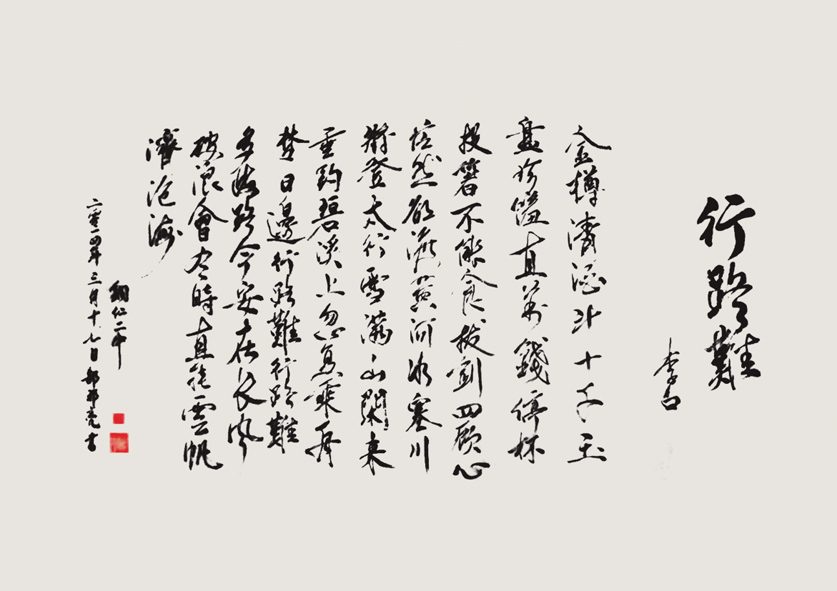 行路難
李白
金樽清酒斗十千玉
盤珍饈直萬錢停杯
投箸不能食拔劍四顧心
茫然欲渡黃河冰塞川
將登太行雪滿山閑來
垂釣碧溪上忽復乘舟
梦日邊行路難行路難
多歧路今安在長風
破浪會有時直掛雲帆
濟滄海
二零一四年三月十七日